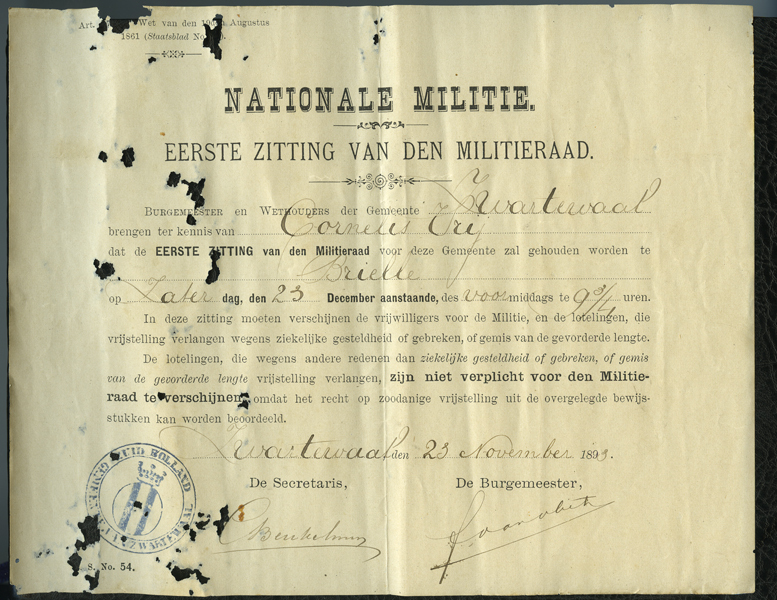 Art. Wet van den 19den Augustus
1861 (Staatsblad No. ).
NATIONALE MILITIE.
EERSTE ZITTING VAN DEN MILITIERAAD.
BURGEMEESTER en WETHOUDERS der Gemeente Zwartewaal
brengen ter kennis van Cornelis Vrij
dat de EERSTE ZITTING van den Militieraad voor deze Gemeente zal gehouden worden te
Brielle
op Zater dag, den 23 December aanstaande, des voormiddags te 9 3/4 uren.
In deze zitting moeten verschijnen de vrijwilligers voor de Militie, en de lotelingen, die
vrijstelling verlangen wegens ziekelijke gesteldheid of gebreken, of gemis van de gevorderde lengte.
De lotelingen, die wegens andere redenen dan ziekelijke gesteldheid of gebreken, of gemis
van de gevorderde lengte vrijstelling verlangen, zijn niet verplicht voor den Militie-
raad te verschijnen, omdat het recht op zoodanige vrijstelling uit de overgelegde bewijs-
stukken kan worden beoordeeld.
Zwartewaal den 23 November 1893.
De Secretaris, De Burgemeester,
ZUID HOLLAND
ZWARTEWAAL
S. No. 54.